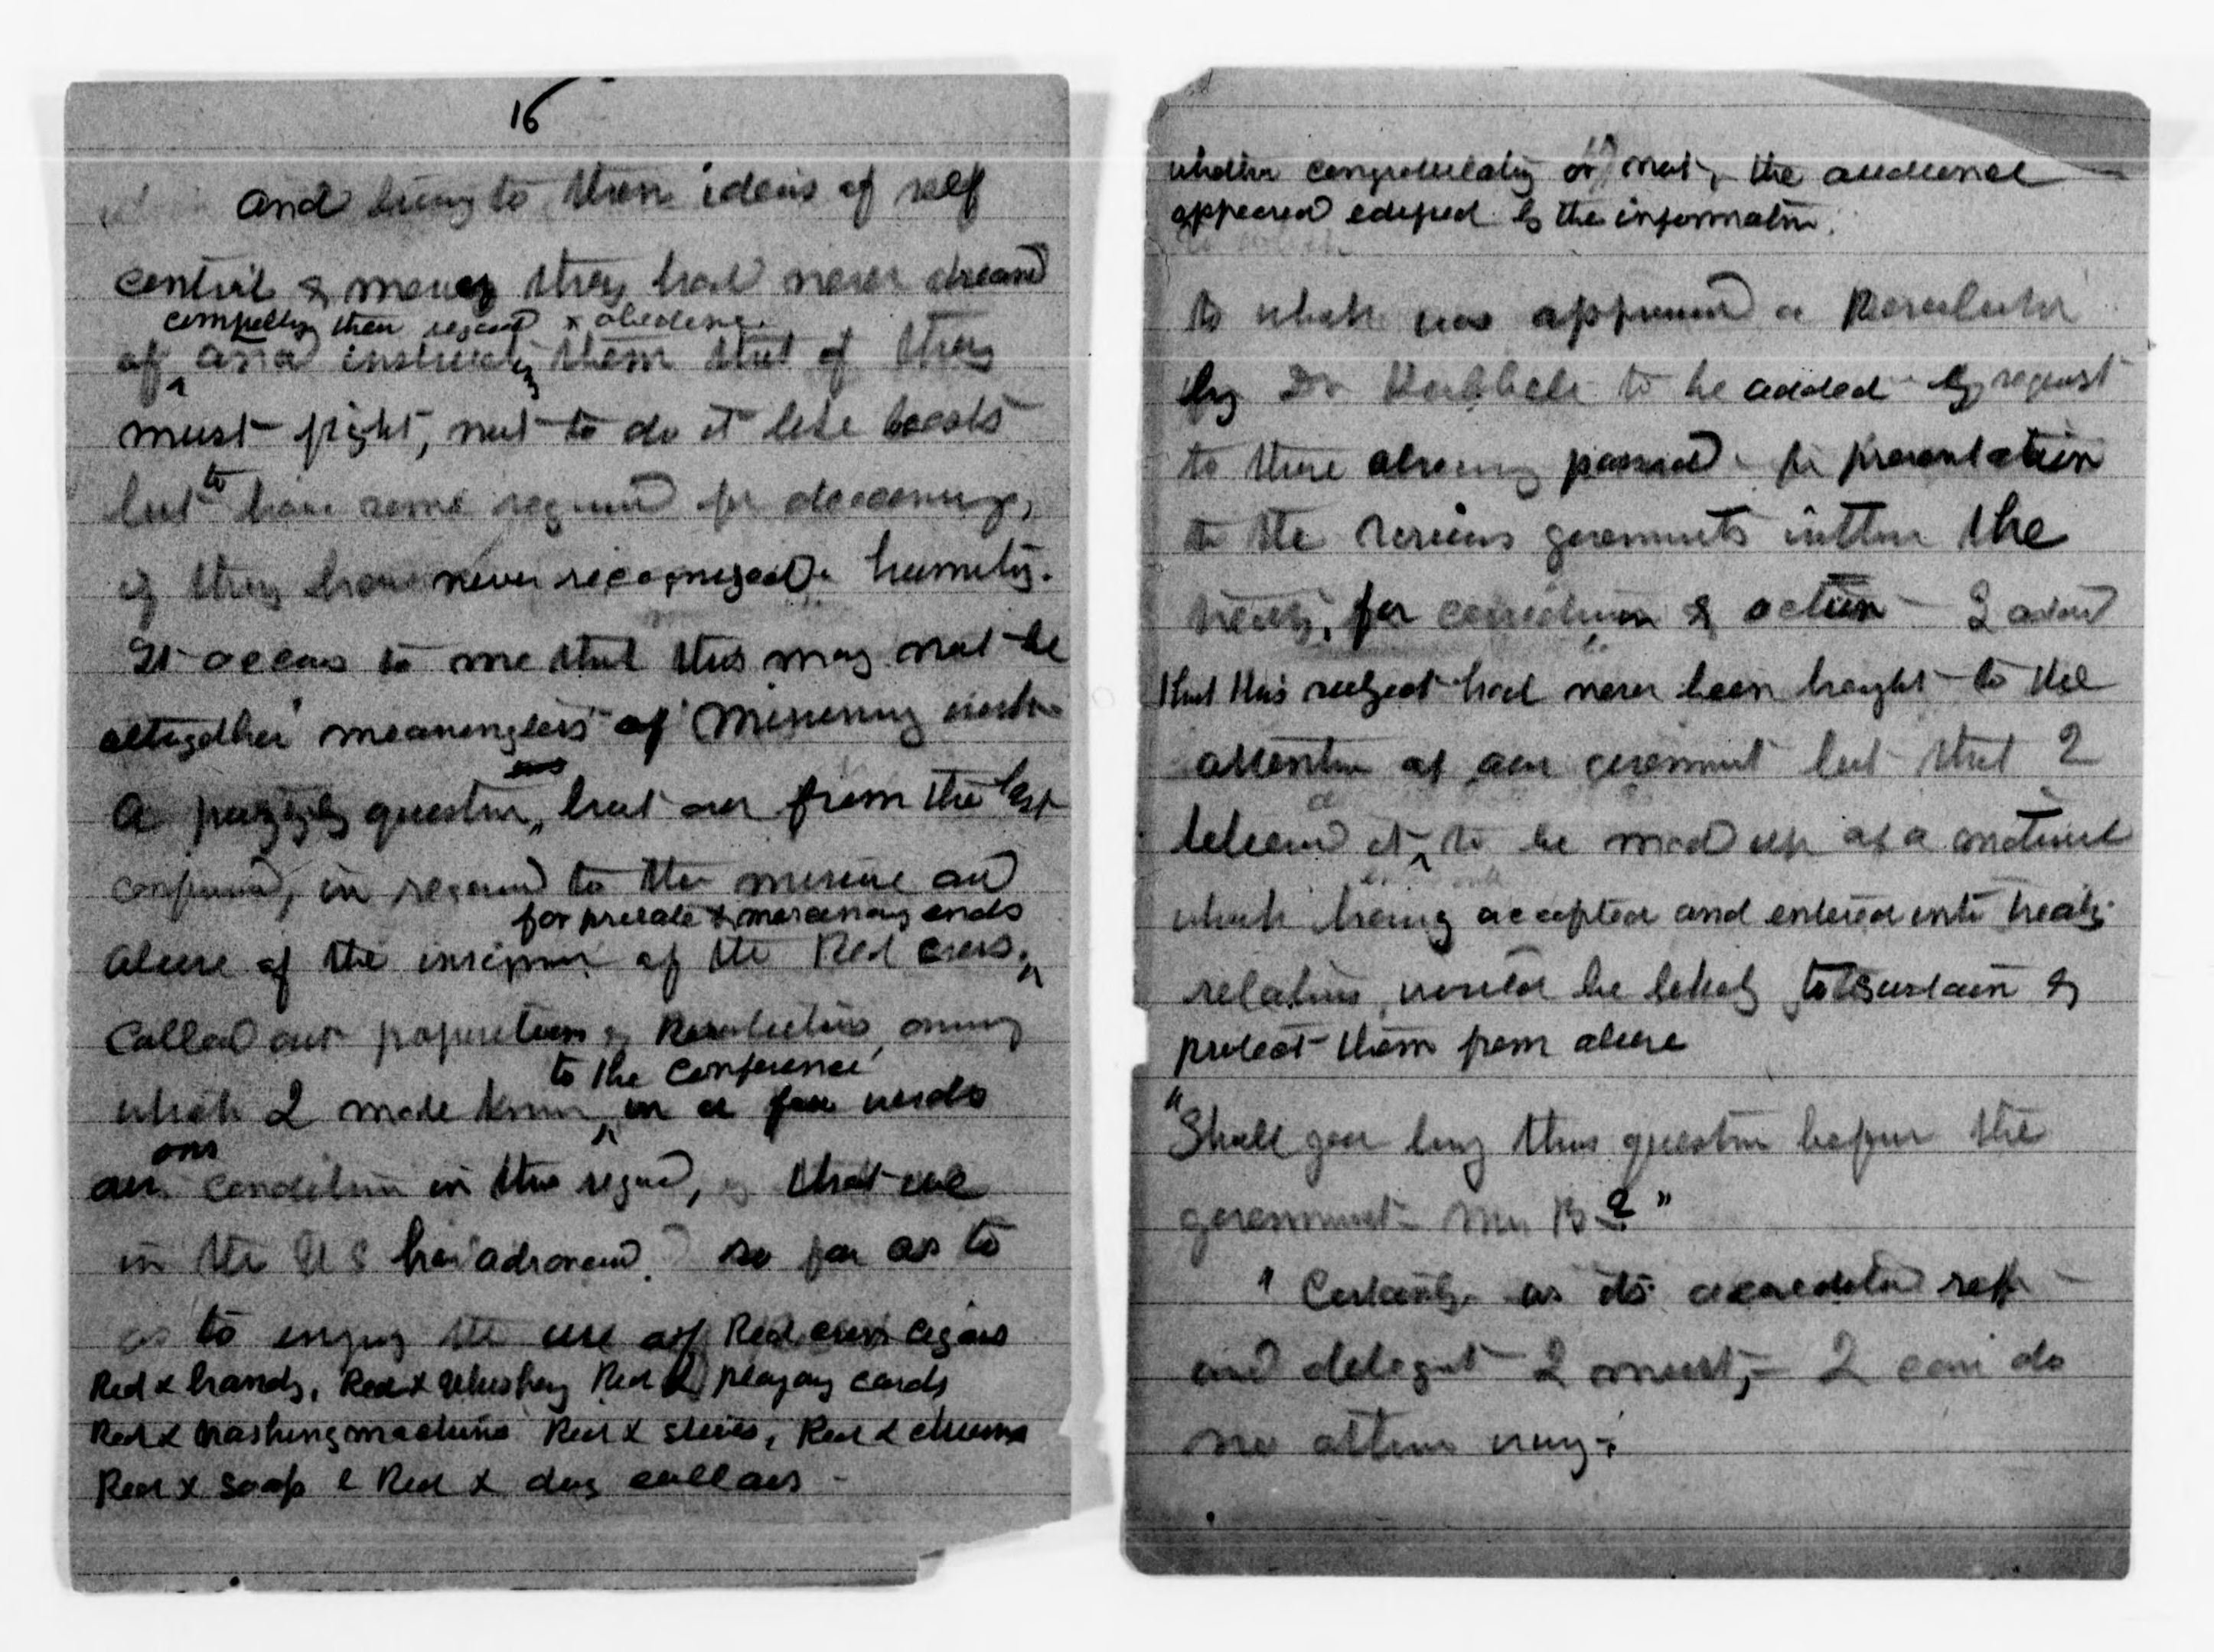 16
and bring to them ideas of self
control & mercy they had never dreamd
compelling their respect & obedience
of and instructing them that if they
must fight, not to do it like beasts
but to have some regard for decency,
if they have never recognized humity.
It occurs to me that this may not be
altogether meaningless as Missionary work
A puzzling question, but one from the last
conferenc, in regard to the misuse and
for private & mercenary ends
abuse of the insignia of the Red cross,
Called out propositions & Resolutions, among
which I made known in a few words
to the Conference
our condition in this regard, & that we
in the U S had advanced so far as to
as to enjoy the use of Red cross cigars
Red x brandy, Red x Whiskey Red x playing cards
Red x Washing machines Red x stoves, Red x churns
Red x soap & Red x dog collars -
whether congratulating or not, the audience
appeared edified by the information.
to which was appened a Resolution
by Dr Hubbell to be added by request
to those already passed for presentation
to the various goverments within the
treaty, for consideration & action - I asked
that this subject had never been brought to the
attention of our goverment but that I
believed it to be mad up of a material
which having accepted and entered into treaty
relations, would be likely to sustain &
protect them from abuse
"Shall you bring this question before the
government Miss B-?"
"Certainly as its accredited rep
and delegat I must, - I can do
no other way-"